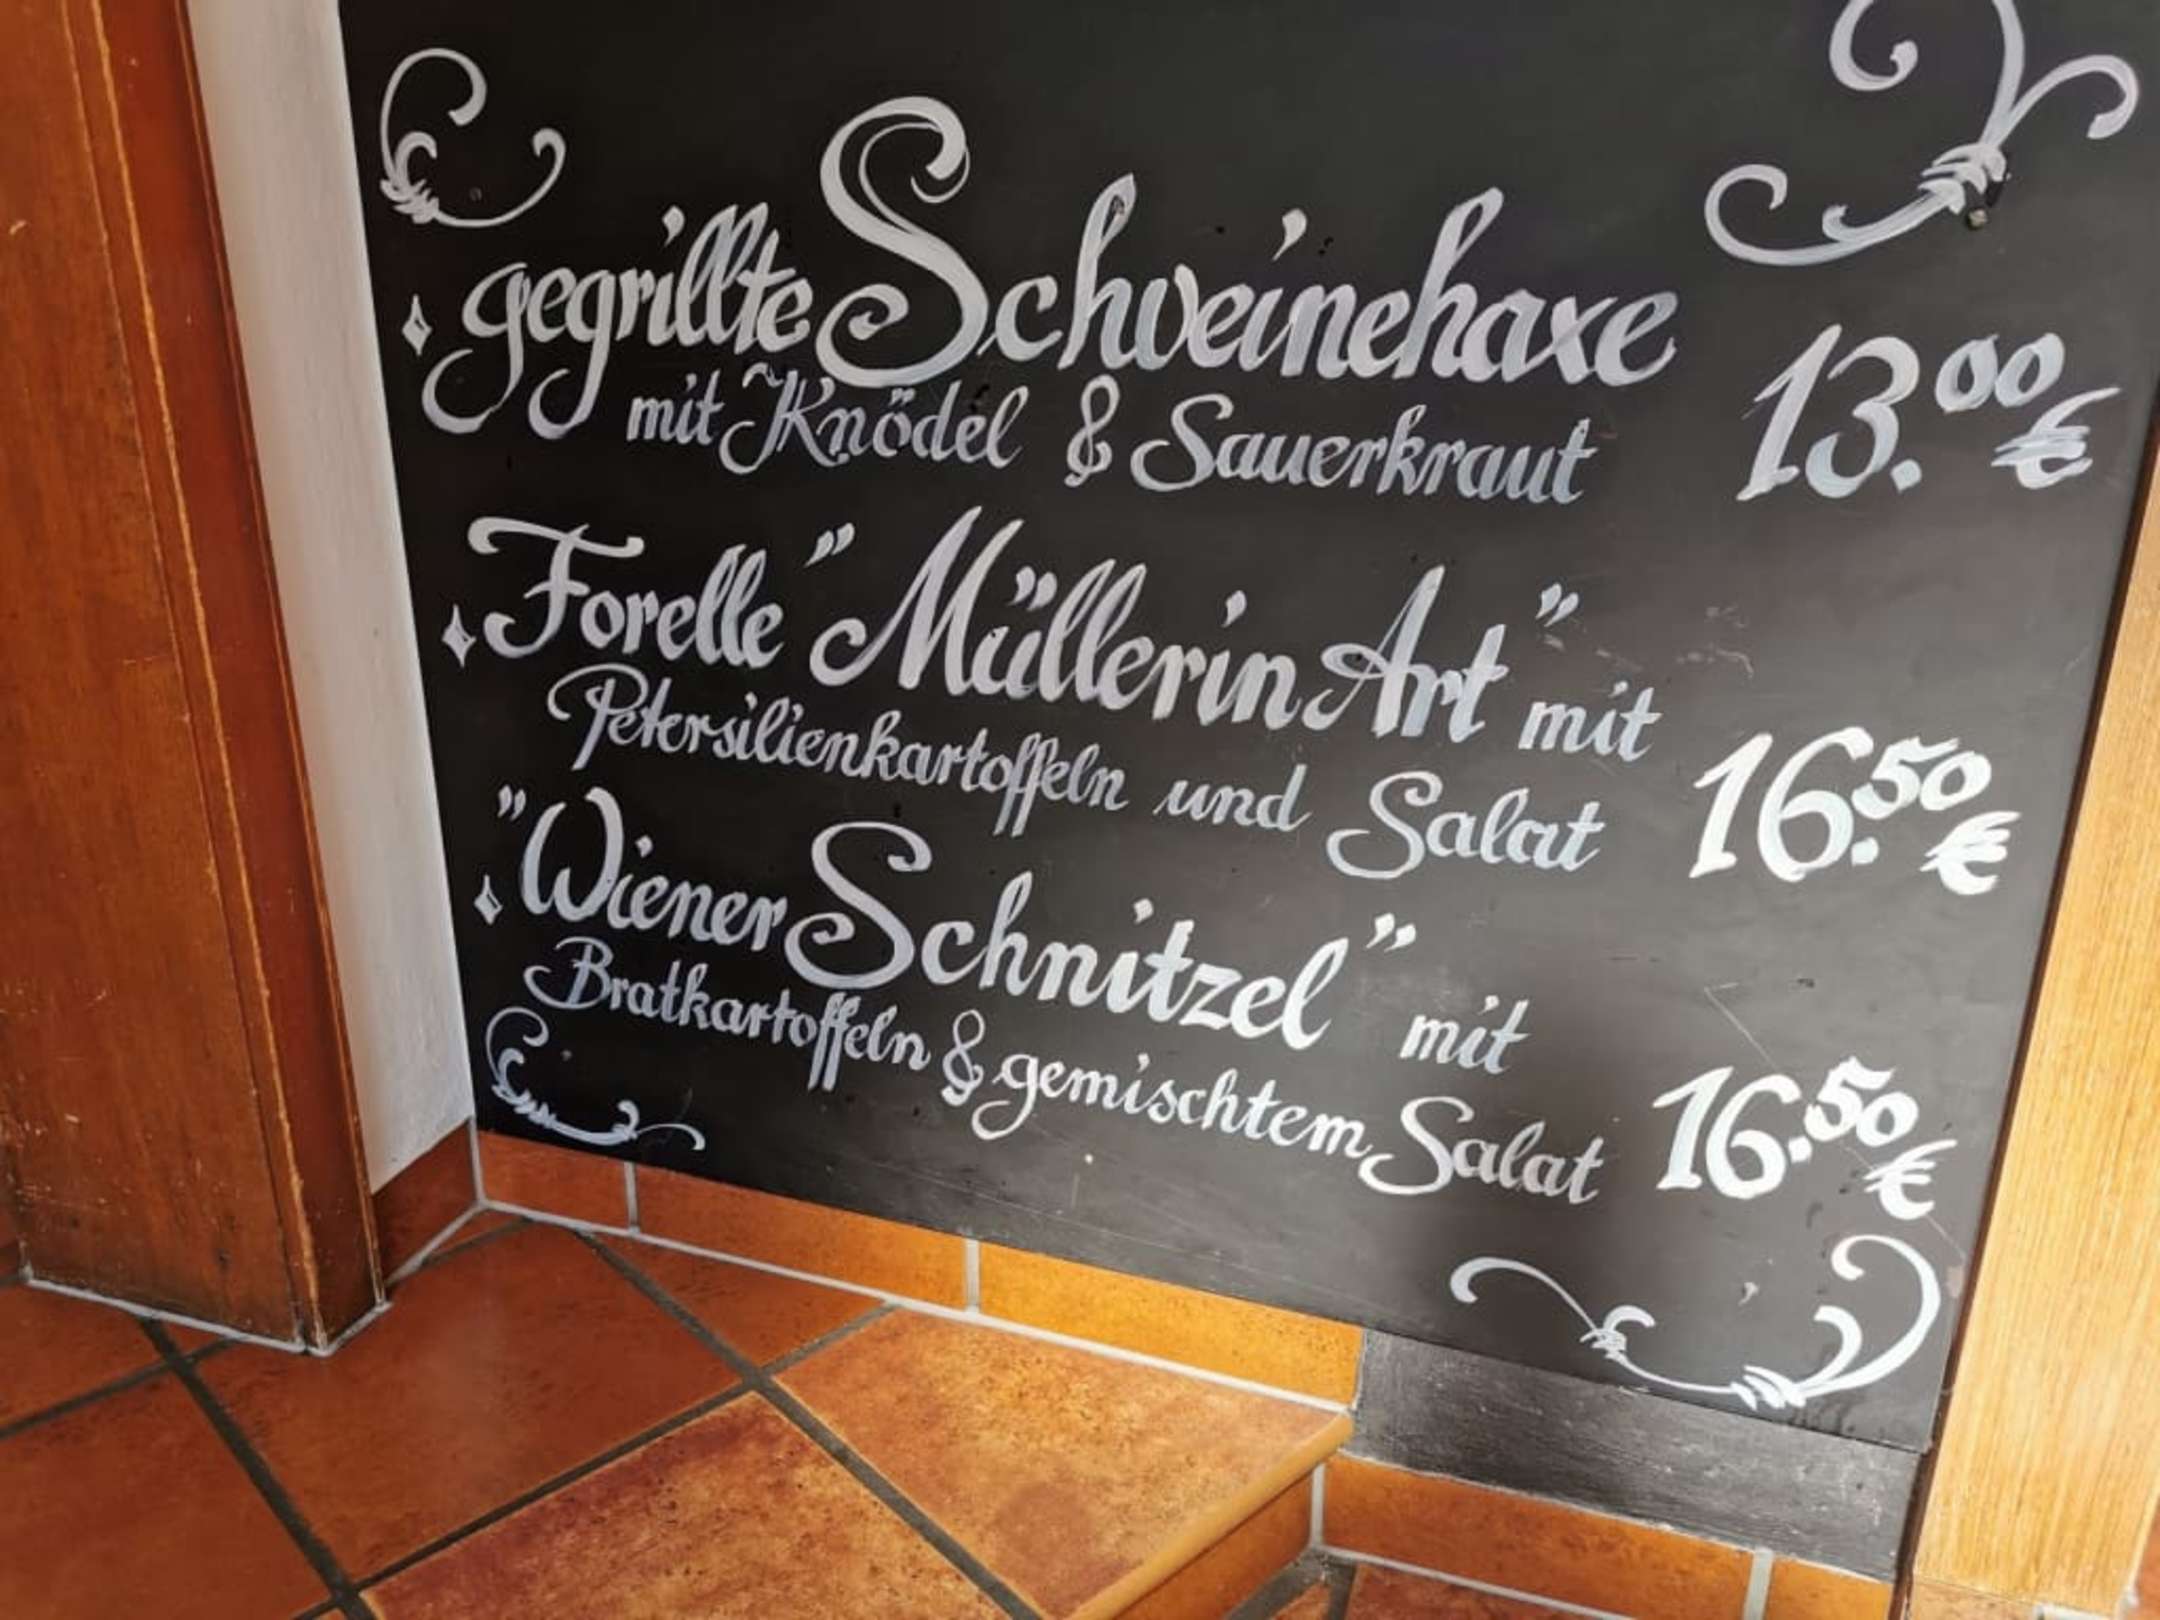 gegrillte Schweinehaxe
mit Knödel & Sauerkraut 13.00 €
Forelle "Müllerin Art" mit
Petersilienkartoffeln und Salat 16.50 €
"Wiener Schnitzel" mit
Bratkartoffeln & gemischtem Salat 16.50 €